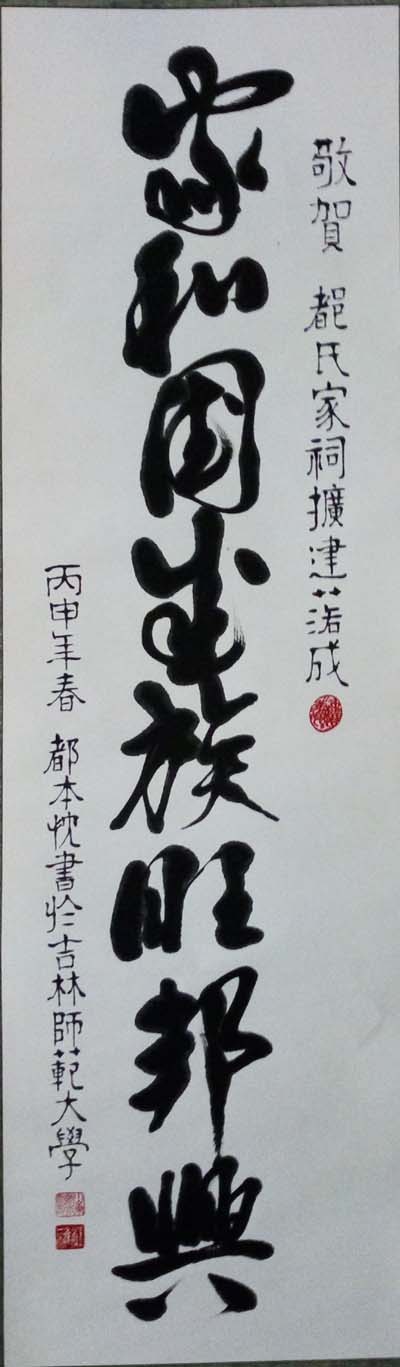 敬賀 都氏家祠擴建落成
家和國盛族旺邦興
丙申年春 都本忱書於吉林師範大學